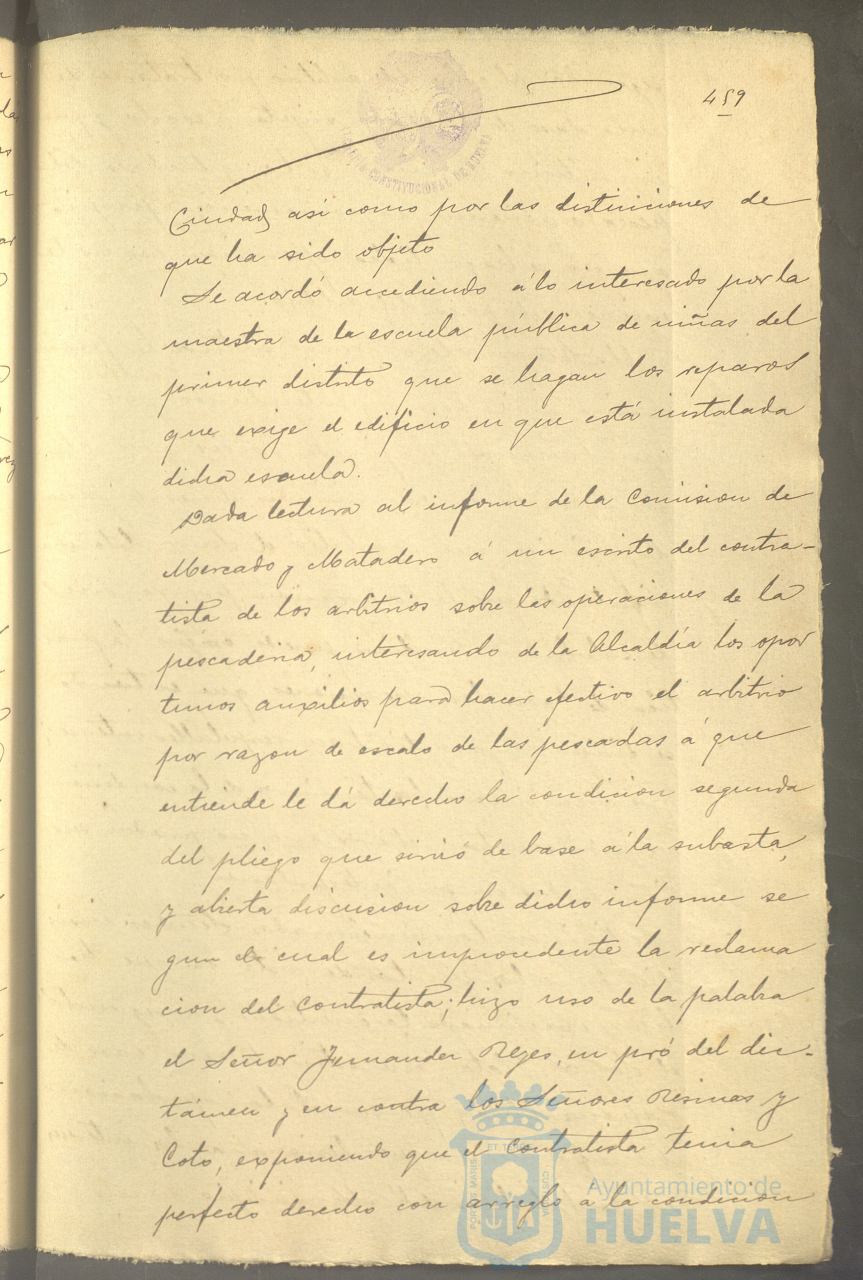 459
CONSTITUCIONAL DE HUELVA
Ciudad así como por las distinciones de
que ha sido objeto
Se acordó accediendo á lo interesado por la
maestra de la escuela pública de niñas del
primer distrito que se hagan los reparos
que exige el edificio en que está instalada
dicha escuela.
Dada lectura al informe de la Comision de
Mercado y Matadero á un escrito del contra-
tista de los arbitrios sobre las operaciones de la
pescaderia, interesando de la Alcaldía los opor
tunos auxilios para hacer efectivo el arbitrio
por razon de escalo de las pescadas á que
entiende le dá derecho la condicion segunda
del pliego que sirvió de base á la subasta,
y abierta discusion sobre dicho informe se
gun el cual es improcedente la reclama
cion del contratista; hizo uso de la palabra
el Señor Fernandez Reyes, en pró del dic-
támen y en contra los Señores Resinas y
Coto, exponiendo que el contratista tenia
perfecto derecho con arreglo a la condicion
Ayuntamiento de
HUELVA